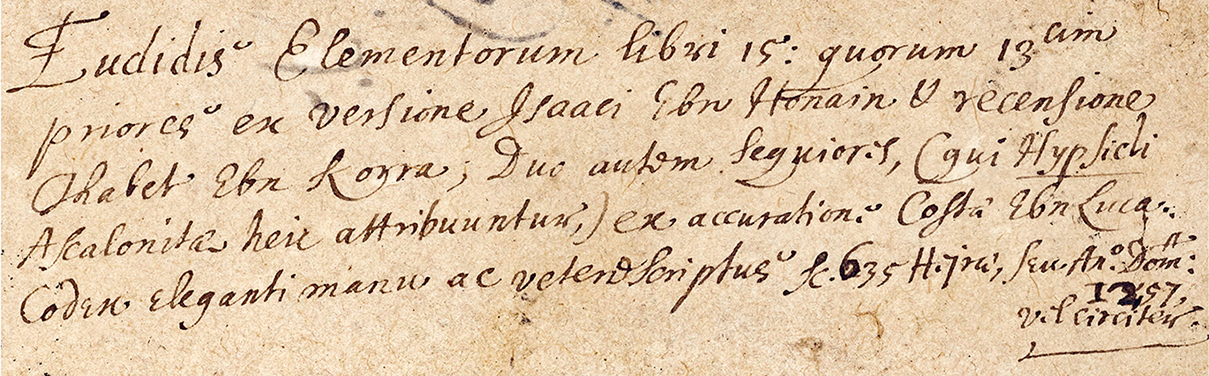 Euclidis Elementorum libri 15: quorum 13cim
priores ex versione Isaaci Ebn Honain & recensione
Thabet Ebn Korra; Duo autem sequiores, (qui Hypsicli
Ascalonitæ heic attribuuntur,) ex accuratione Costæ Ebn Luca.
Codex eleganti manu ac vetere scriptus sc. 635 Hejræ, seu Ano. Dom:
1257,
vel circiter.